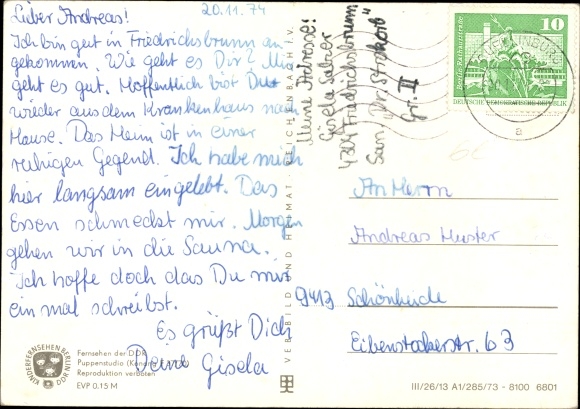 20.11.74
Lieber Andreas!
Ich bin gut in Friedrichsbrunn an
gekommen. Wie geht es Dir? Mir
geht es gut. Hoffentlich bist Du
wieder aus dem Krankenhaus nach
Hause. Das Heim ist in einer
ruhigen Gegend. Ich habe mich
hier langsam eingelebt. Das
Essen schmeckt mir. Morgen
gehen wir in die Sauna.
Ich hoffe doch das Du mir
ein mal schreibst.
Es grüßt Dich
Deine Gisela
Meine Adresse:
Gisela
4304 Friedrichsbrunn
San.
Gr. II
10
DEUTSCHE DEMOKRATISCHE REPUBLIK
a
An Herrn
Andreas Muster
9413 Schönheide
Eibenstockerstr. 63
VEB BILD UND HEIMAT REICHENBACH I.V.
KINDERFERNSEHEN BERLIN
DDR
Fernsehen der DDR
Puppenstudio
Reproduktion verboten
EVP 0,15 M
III/26/13 A1/285/73 - 8100 6801